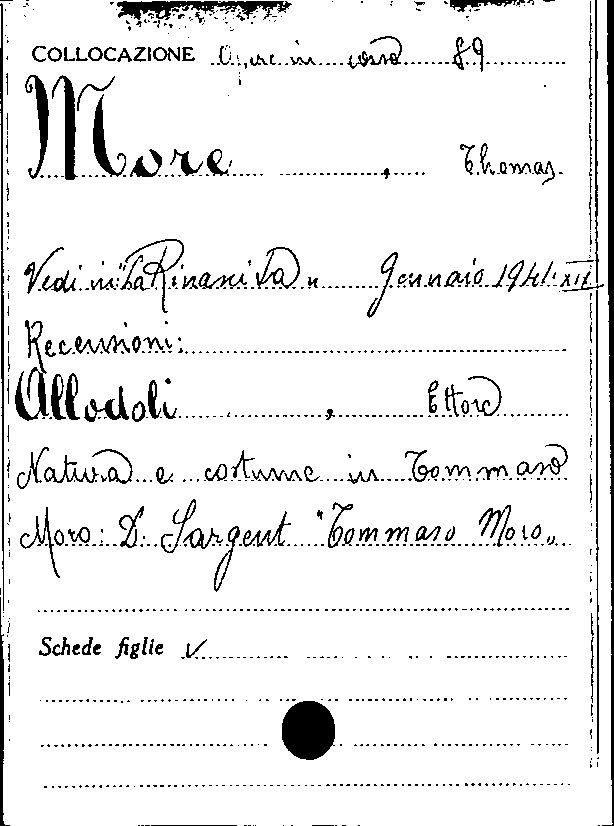 COLLOCAZIONE Opere in corso 89
More, Thomas.
Vedi in "La Rinascita" Gennaio 1941-XIX
Recensioni:
Allodoli, Ettore
Natura e costume in Tommaso
Moro: D. Sargent "Tommaso Moro"
Schede figlie ✓